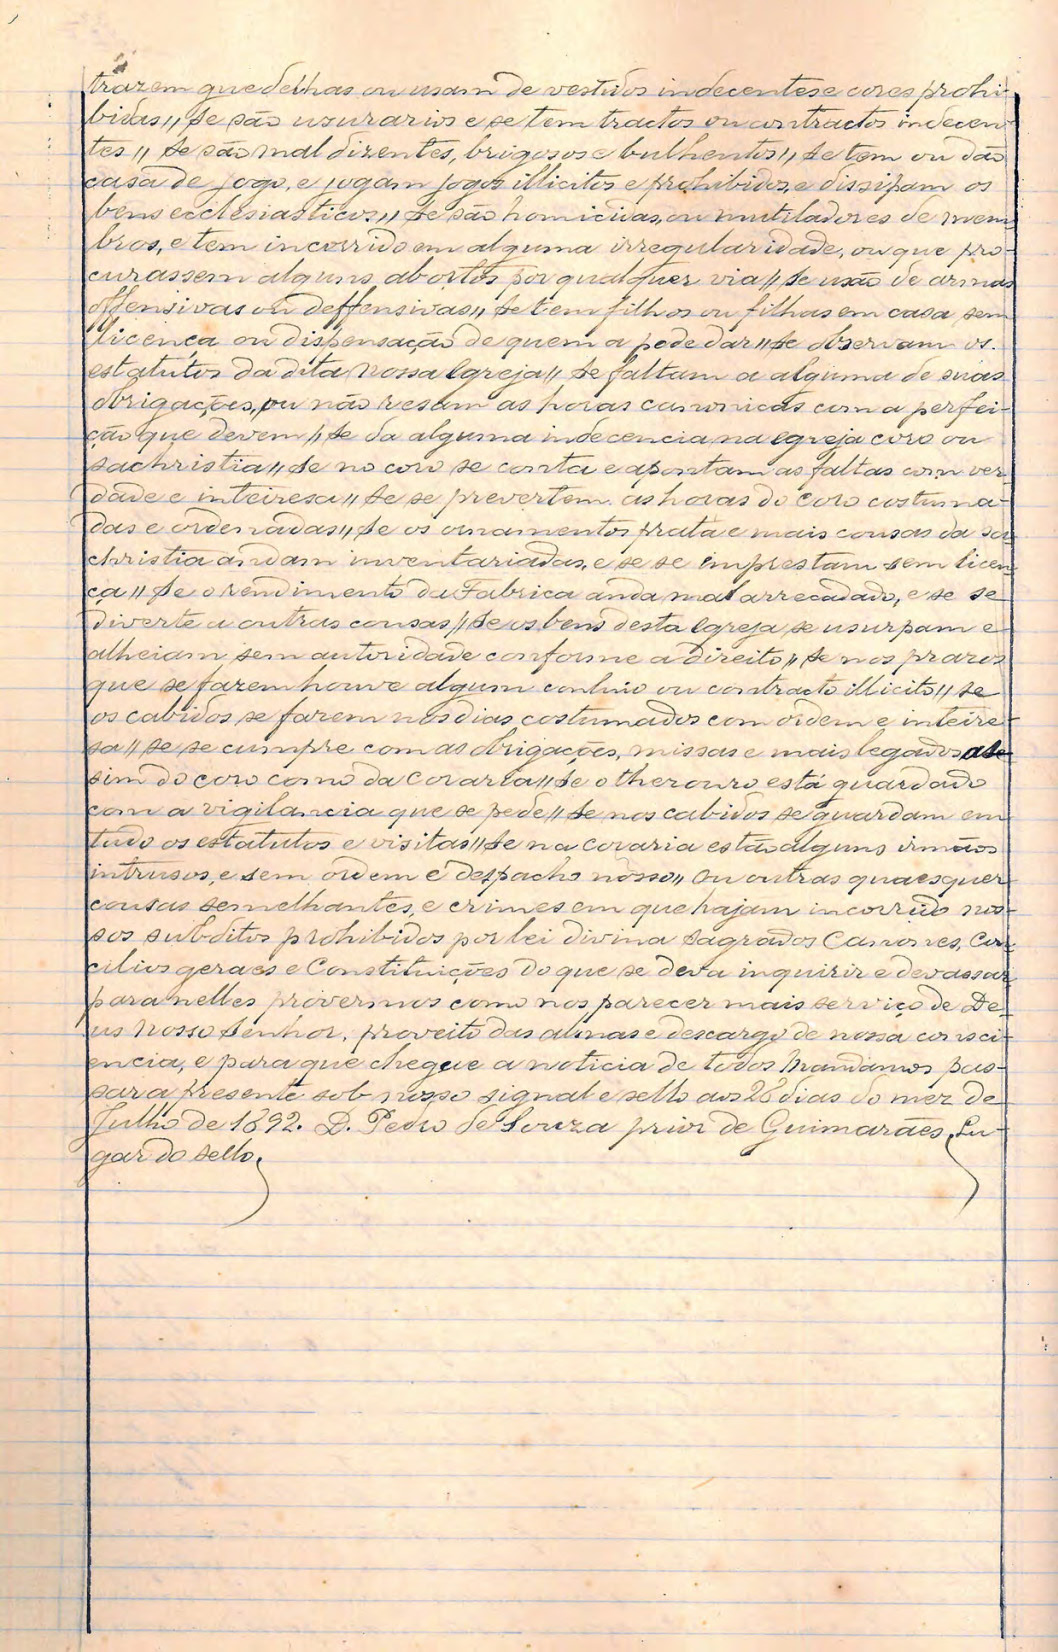 trazem guedelhas ou usam de vestidos indecentes e cores prohi-
bidas,, Se são usurarios e se tem tractos ou contractos indecen-
tes,, Se são mal dizentes, brigosos e bulhentos,, Se tem ou dão
casa de jogo, e jogam jogos illicitos e prohibidos, e dissipam os
bens ecclesiasticos,, Se são homicidas, ou mutiladores de mem
bros, e tem incorrido em alguma irregularidade, ou que pro-
curassem alguns abortos por qualquer via,, Se usão de armas
offensivas ou deffensivas,, Se tem filhos ou filhas em casa sem
licença ou dispensação de quem a pode dar,, Se observam os
estatutos da dita nossa Egreja,, Se faltam a alguma de suas
obrigações, ou não resam as horas canonicas com a perfei-
ção que devem,, Se da alguma indecencia na egreja coro ou
sachristia,, Se no coro se conta e apontam as faltas com ver
dade e inteiresa,, Se se prevertem as horas do coro costuma-
das e ordenadas,, Se os ornamentos prata e mais cousas da sa
christia andam inventariadas, e se se imprestam sem licen
ça,, Se o rendimento da Fabrica anda mal arrecadado, e se se
diverte a outras cousas,, Se os bens desta Egreja se usurpam e
alheiam sem autoridade conforme a direito,, Se nos prazos
que se fazem houve algum conluio ou contracto illicito,, Se
os cabidos se fazem nos dias costumados com ordem e inteire-
sa,, Se se cumpre com as obrigações, missas e mais legados as
sim do coro como da coraria,, Se o thezouro está guardado
com a vigilancia que se pede,, Se nos cabidos se guardam em
tudo os estatutos e visitas,, Se na coraria estão alguns irmãos
intrusos, e sem ordem e despacho nosso,, Ou outras quaesquer
cousas semelhantes, e crimes em que hajam incorrido nos-
sos subditos prohibidos por lei divina Sagrados Canones, Con
cilios geraes e Constituições do que se deva inquirir e devassar
para nelles provermos como nos parecer mais serviço de De
us Nosso Senhor, proveito das almas e descargo de nossa consci-
encia, e para que chegue a noticia de todos Mandamos pas-
sar a presente sob nosso signal e sello aos 28 dias do mez de
Julho de 1692. D. Pedro de Souza prior de Guimarães, Lu-
gar do sello.